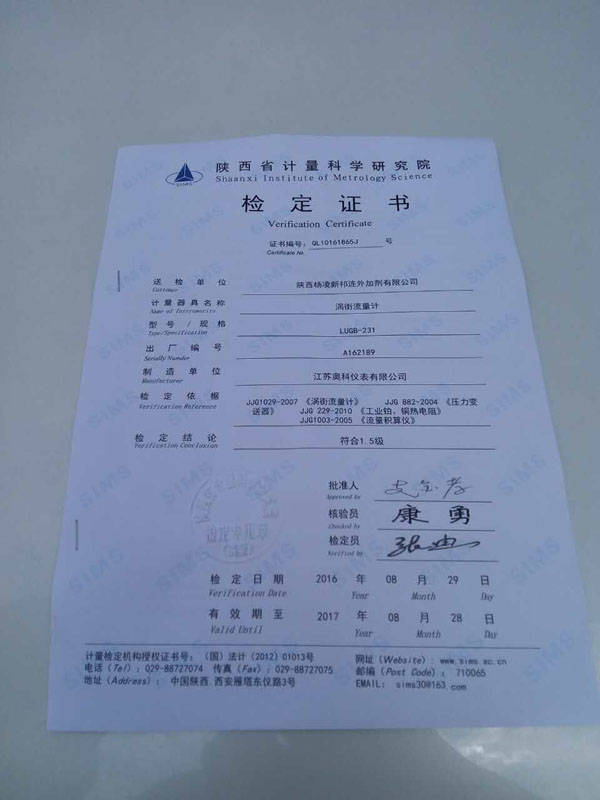 陕西省计量科学研究院
SIMS
Shaanxi Institute of Metrology Science
检定证书
Verification Certificate
证书编号: QL10161865J 号
Certificate No
送检单位 陕西杨凌新祁连外加剂有限公司
Customer
计量器具名称 涡街流量计
Name of Instruments
型号/规格 LUGB-231
Type/Specification
出厂编号 A162189
Serially Number
制造单位 江苏奥科仪表有限公司
Manufacturer
检定依据 JJG1029-2007 《涡街流量计》 JJG 882-2004 《压力变
Verification Reference 送器》 JJG 229-2010 《工业铂、铜热电阻》
JJG1003-2005 《流量积算仪》
检定结论 符合1.5级
Verification Conclusion
批准人
Approved by
核验员 康勇
Checked by
检定员 张迪
Verified by
检定日期 2016 年 08 月 29 日
Verification Date Year Month Day
有效期至 2017 年 08 月 28 日
Valid Until Year Month Day
计量检定机构授权证书号: (国)法计(2012)01013号 网址(Website): www.sims.ac.cn
电话(Tel): 029-88727074 传真(Fax): 029-88727075 邮编(Post Code): 710065
地址(Address): 中国陕西 西安雁塔东仪路3号 EMAIL: sims30@163.com